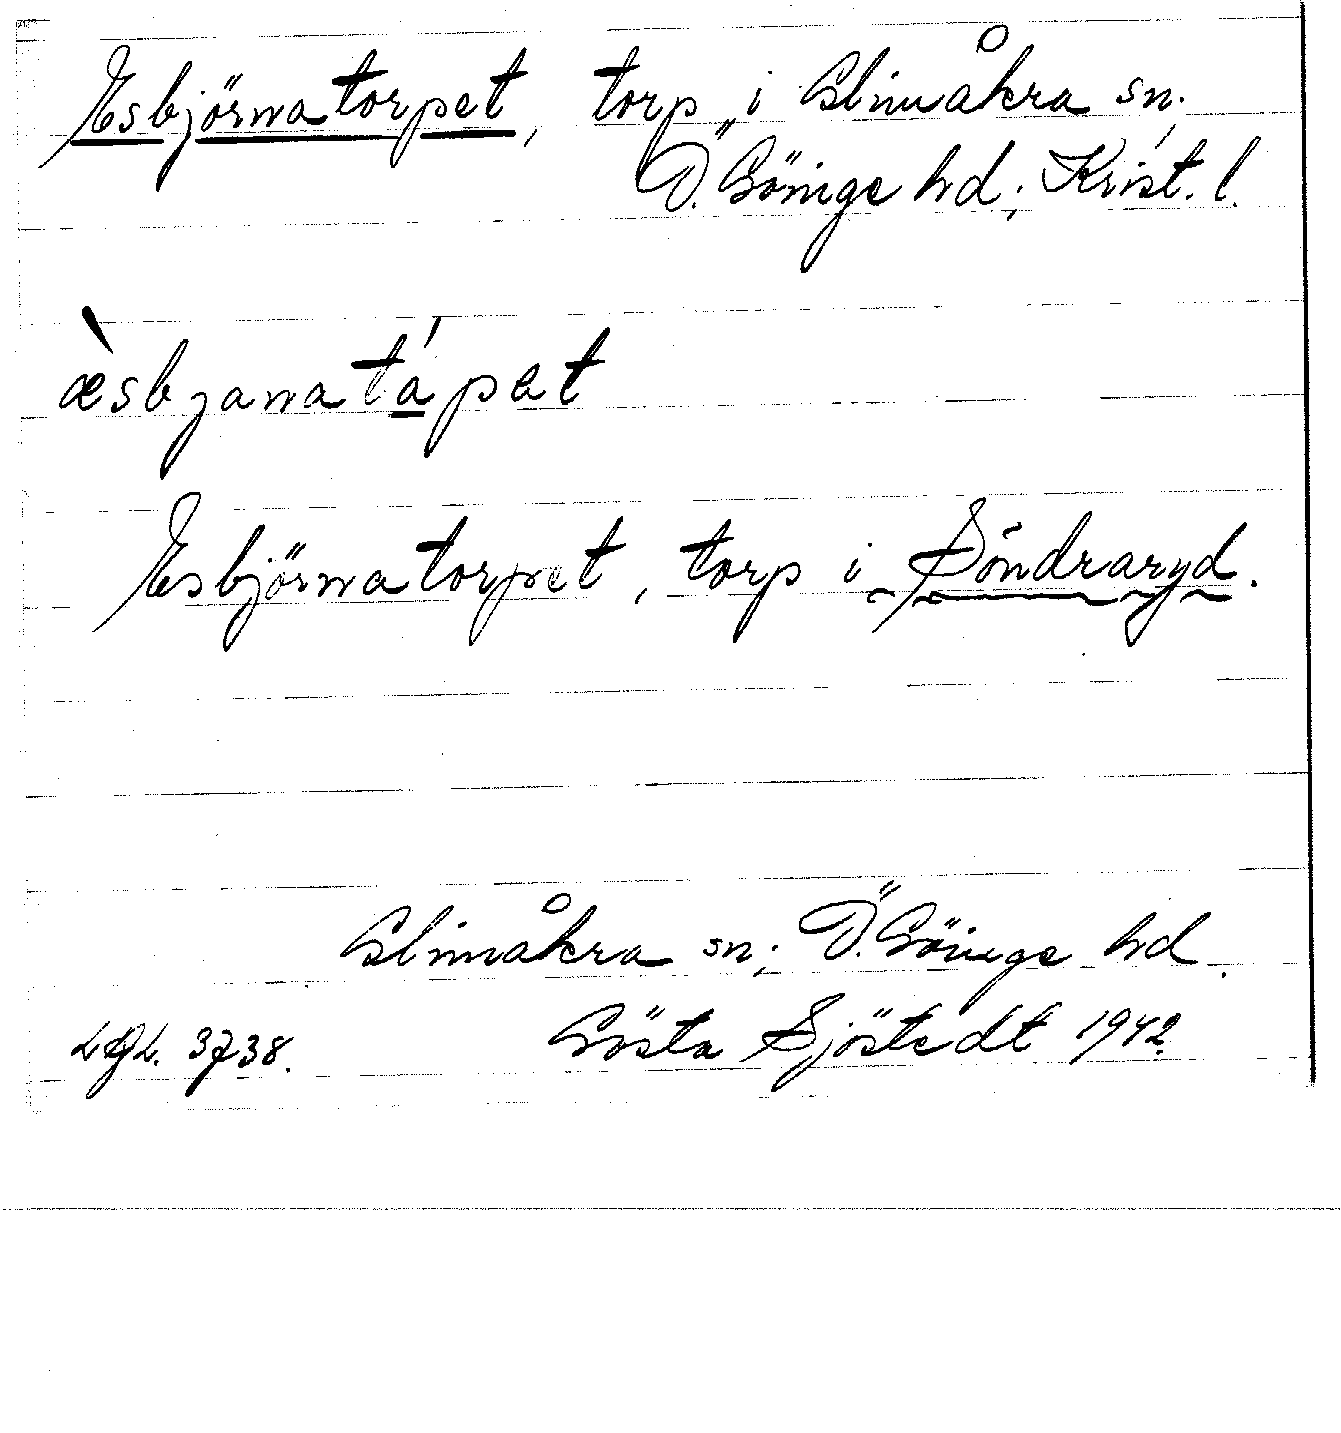 Esbjörnatorpet, torp i Glimåkra sn.
Ö. Göinge hd; Krist. l.
æ̀sbjanatápat
Esbjörnatorpet, torp i Söndraryd.
Glimåkra sn; Ö. Göinge hd.
LGL. 3738. Gösta Sjöstedt 1942.